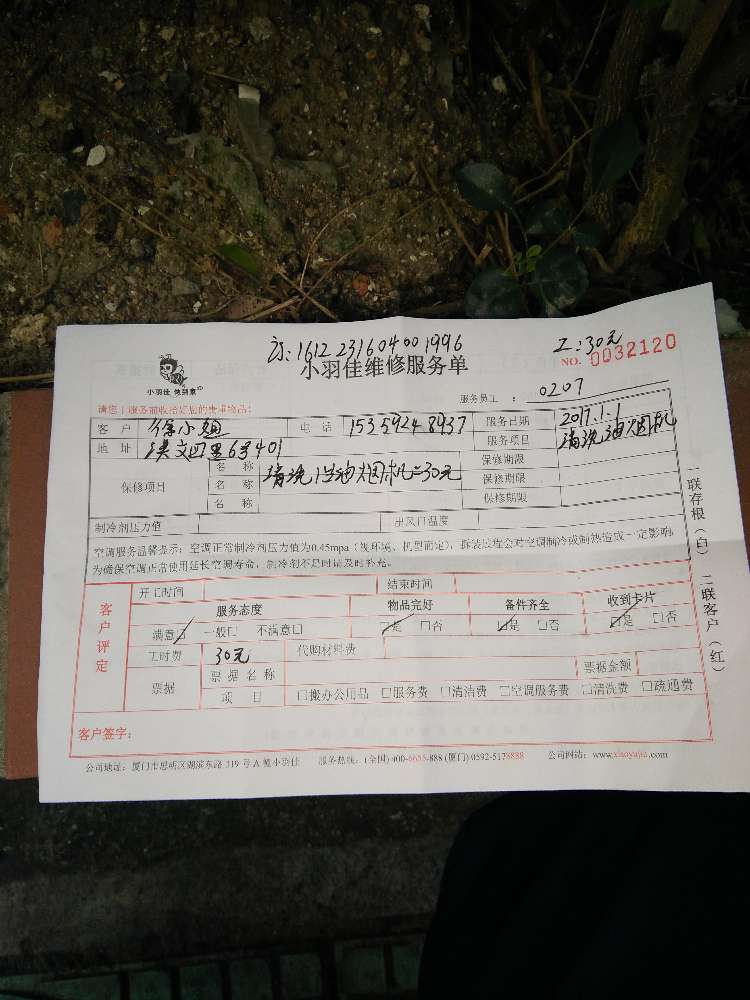 方:161223160400 1996 工:30元
小羽佳维修服务单 NO. 0032120
小羽佳 做到家
服务员工 : 0207
请您!服务前收拾好您的贵重物品:
客户 徐小姐 电话 15359248937 服务日期 2017.1.1
地址 洪文四里6号401 服务项目 清洗油烟机
保修项目 名称 清洗1台油烟机=30元 保修期限
名称 保修期限
名称 保修期限
制冷剂压力值 出风口温度
空调服务温馨提示:空调正常制冷剂压力值为0.45mpa(视环境、机型而定),拆装过程会对空调制冷或制热造成一定影响
为确保空调正常使用延长空调寿命,制冷剂不足时请及时补充。
开工时间 结束时间
客户评定 服务态度 物品完好 备件齐全 收到卡片
满意□ 一般□ 不满意□ □是 □否 □是 □否 □是 □否
工时费 30元 代购材料费
票据 票据名称 票据金额
项目 □搬办公用品 □服务费 □清洁费 □空调服务费 □清洗费 □疏通费
客户签字:
公司地址:厦门市思明区湖滨东路319号A幢小羽佳 服务热线:(全国)400-6655-888 (厦门)0592-5178888 公司网站:www.xiaoyujia.com
一联存根(白) 二联客户(红)